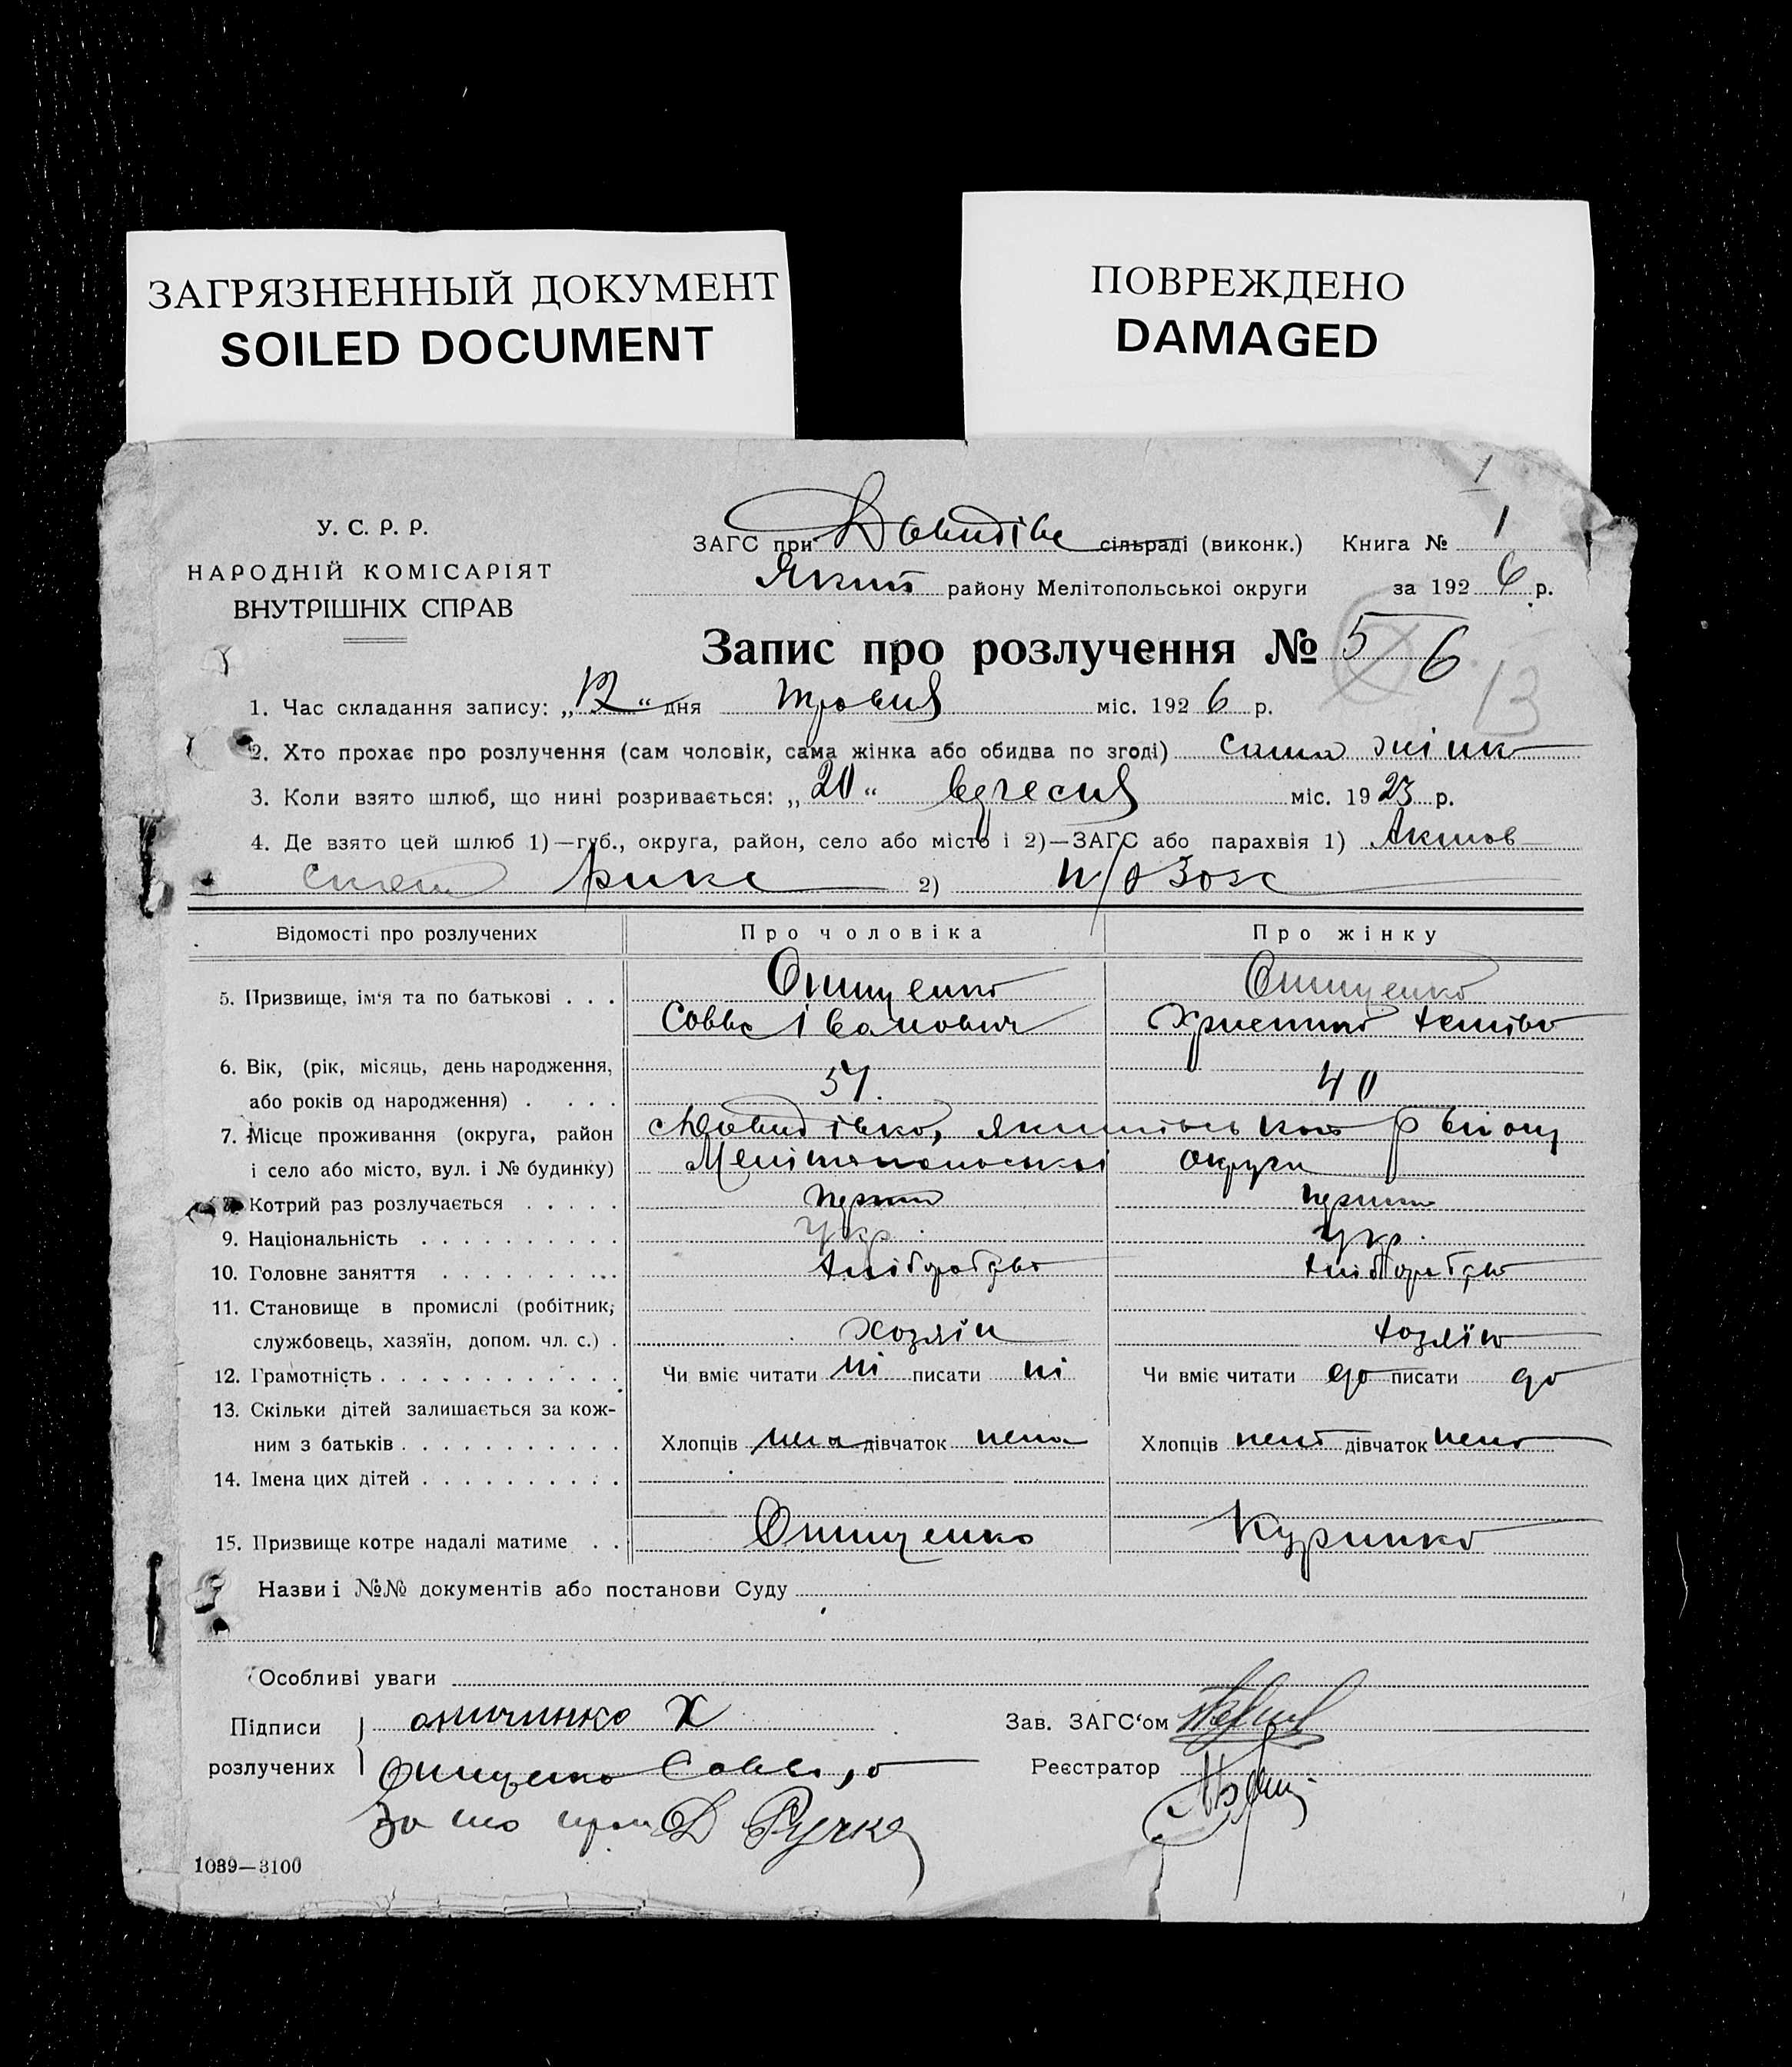 ЗАГРЯЗНЕННЫЙ ДОКУМЕНТ
SOILED DOCUMENT
ПОВРЕЖДЕНО
DAMAGED
1
У. С. Р. Р.
НАРОДНІЙ КОМІСАРІЯТ
ВНУТРІШНІХ СПРАВ
ЗАГС при Давидівс сільраді (виконк.) Книга № 1
Яким району Мелітопольської округи за 1926 р.
Запис про розлучення № 5 6
13
1. Час складання запису: „12“ дня травня міс. 1926 р.
2. Хто прохає про розлучення (сам чоловік, сама жінка або обидва по згоді) сама жінка
3. Коли взято шлюб, що нині розривається: „20“ вересня міс. 1923 р.
4. Де взято цей шлюб 1)—губ., округа, район, село або місто і 2)—ЗАГС або парахвія 1) Акимов
2)
Відомості про розлучених Про чоловіка Про жінку
5. Призвище, ім‘я та по батькові . . . Онищенко Онищенко
Савва Іванович Христина
6. Вік, (рік, місяць, день народження,
або років од народження) . . . . 57. 40
7. Місце проживання (округа, район Давидівка, Якимівського району
і село або місто, вул. і № будинку) Мелітопольської округи
8. Котрий раз розлучається . . . . . перший перший
9. Національність . . . . . . . . . . укр. укр.
10. Головне заняття . . . . . . . . . . хліборобство хліборобство
11. Становище в промислі (робітник,
службовець, хазяїн, допом. чл. с.) . хозяїн хозяїка
12. Грамотність . . . . . . . . . . . . Чи вміє читати ні писати ні Чи вміє читати да писати да
13. Скільки дітей залишається за кож-
ним з батьків . . . . . . . . . . . Хлопців нема дівчаток нема Хлопців нема дівчаток нема
14. Імена цих дітей . . . . . . . . . .
15. Призвище котре надалі матиме . . Онищенко Куринко
Назви і №№ документів або постанови Суду
Особливі уваги
Підписи онищинко Х Зав. ЗАГС‘ом
розлучених Онищенко Савва, а Реєстратор
За Ручка
1039—3100